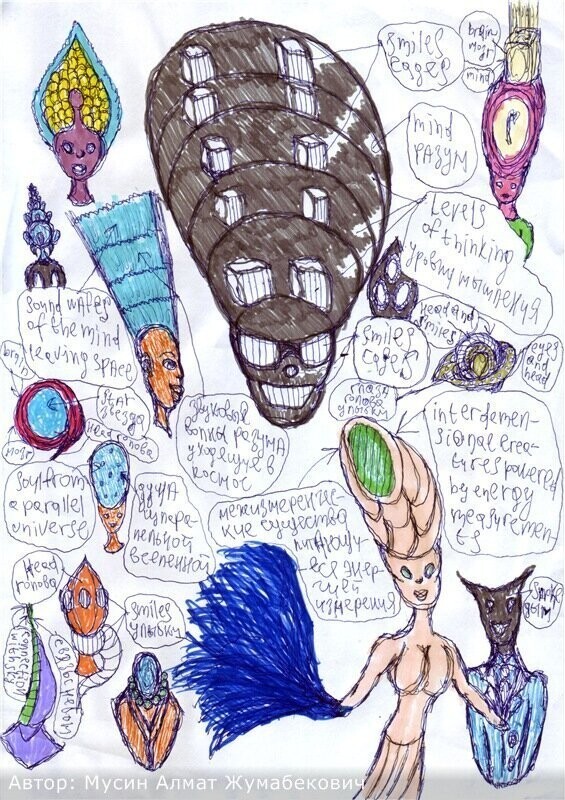 smiles
eages
brain
мозг
mind
mind
разум
Levels
of thinking
уровни мышления
sound waves
of the mind
leaving space
head and
smiles
smiles
eages
eyes
and
head
глаза
голова
улыбки
brain
мозг
star
звезда
head голова
звуковые
волны разума
уходящие в
космос
interdemen-
sional crea-
tures powered
by energy
measuremen-
ts
soul from
a parallel
universe
душа
из пара-
лельной
вселенной
межизмеренчес-
кие существа
питающи-
еся энер-
гией
измерения
Head
голова
smiles
улыбки
connection
with sky
связь с небом
smoke
дым
Автор: Мусин Алмат Жумабекович